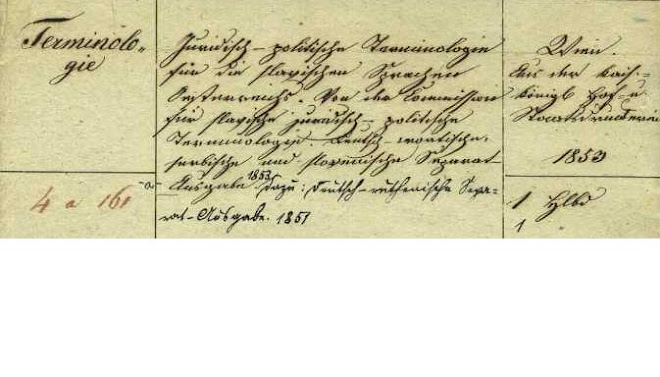 Terminolo-
gie
4 a 161
Juridisch-politische Terminologie
für die slavischen Sprachen
Oesterreichs. Von der Commission
für slavische juridisch-politische
Terminologie. Deutsch-croatische,
serbische und slovenische Separat-
-a- Ausgabe 1853 Dazu: Deutsch-ruthenische Sepa-
rat-Ausgabe. 1851
Wien.
Aus der kais.-
königl Hof- u.
Staatsdruckerei
1853
1 Hlbd
1